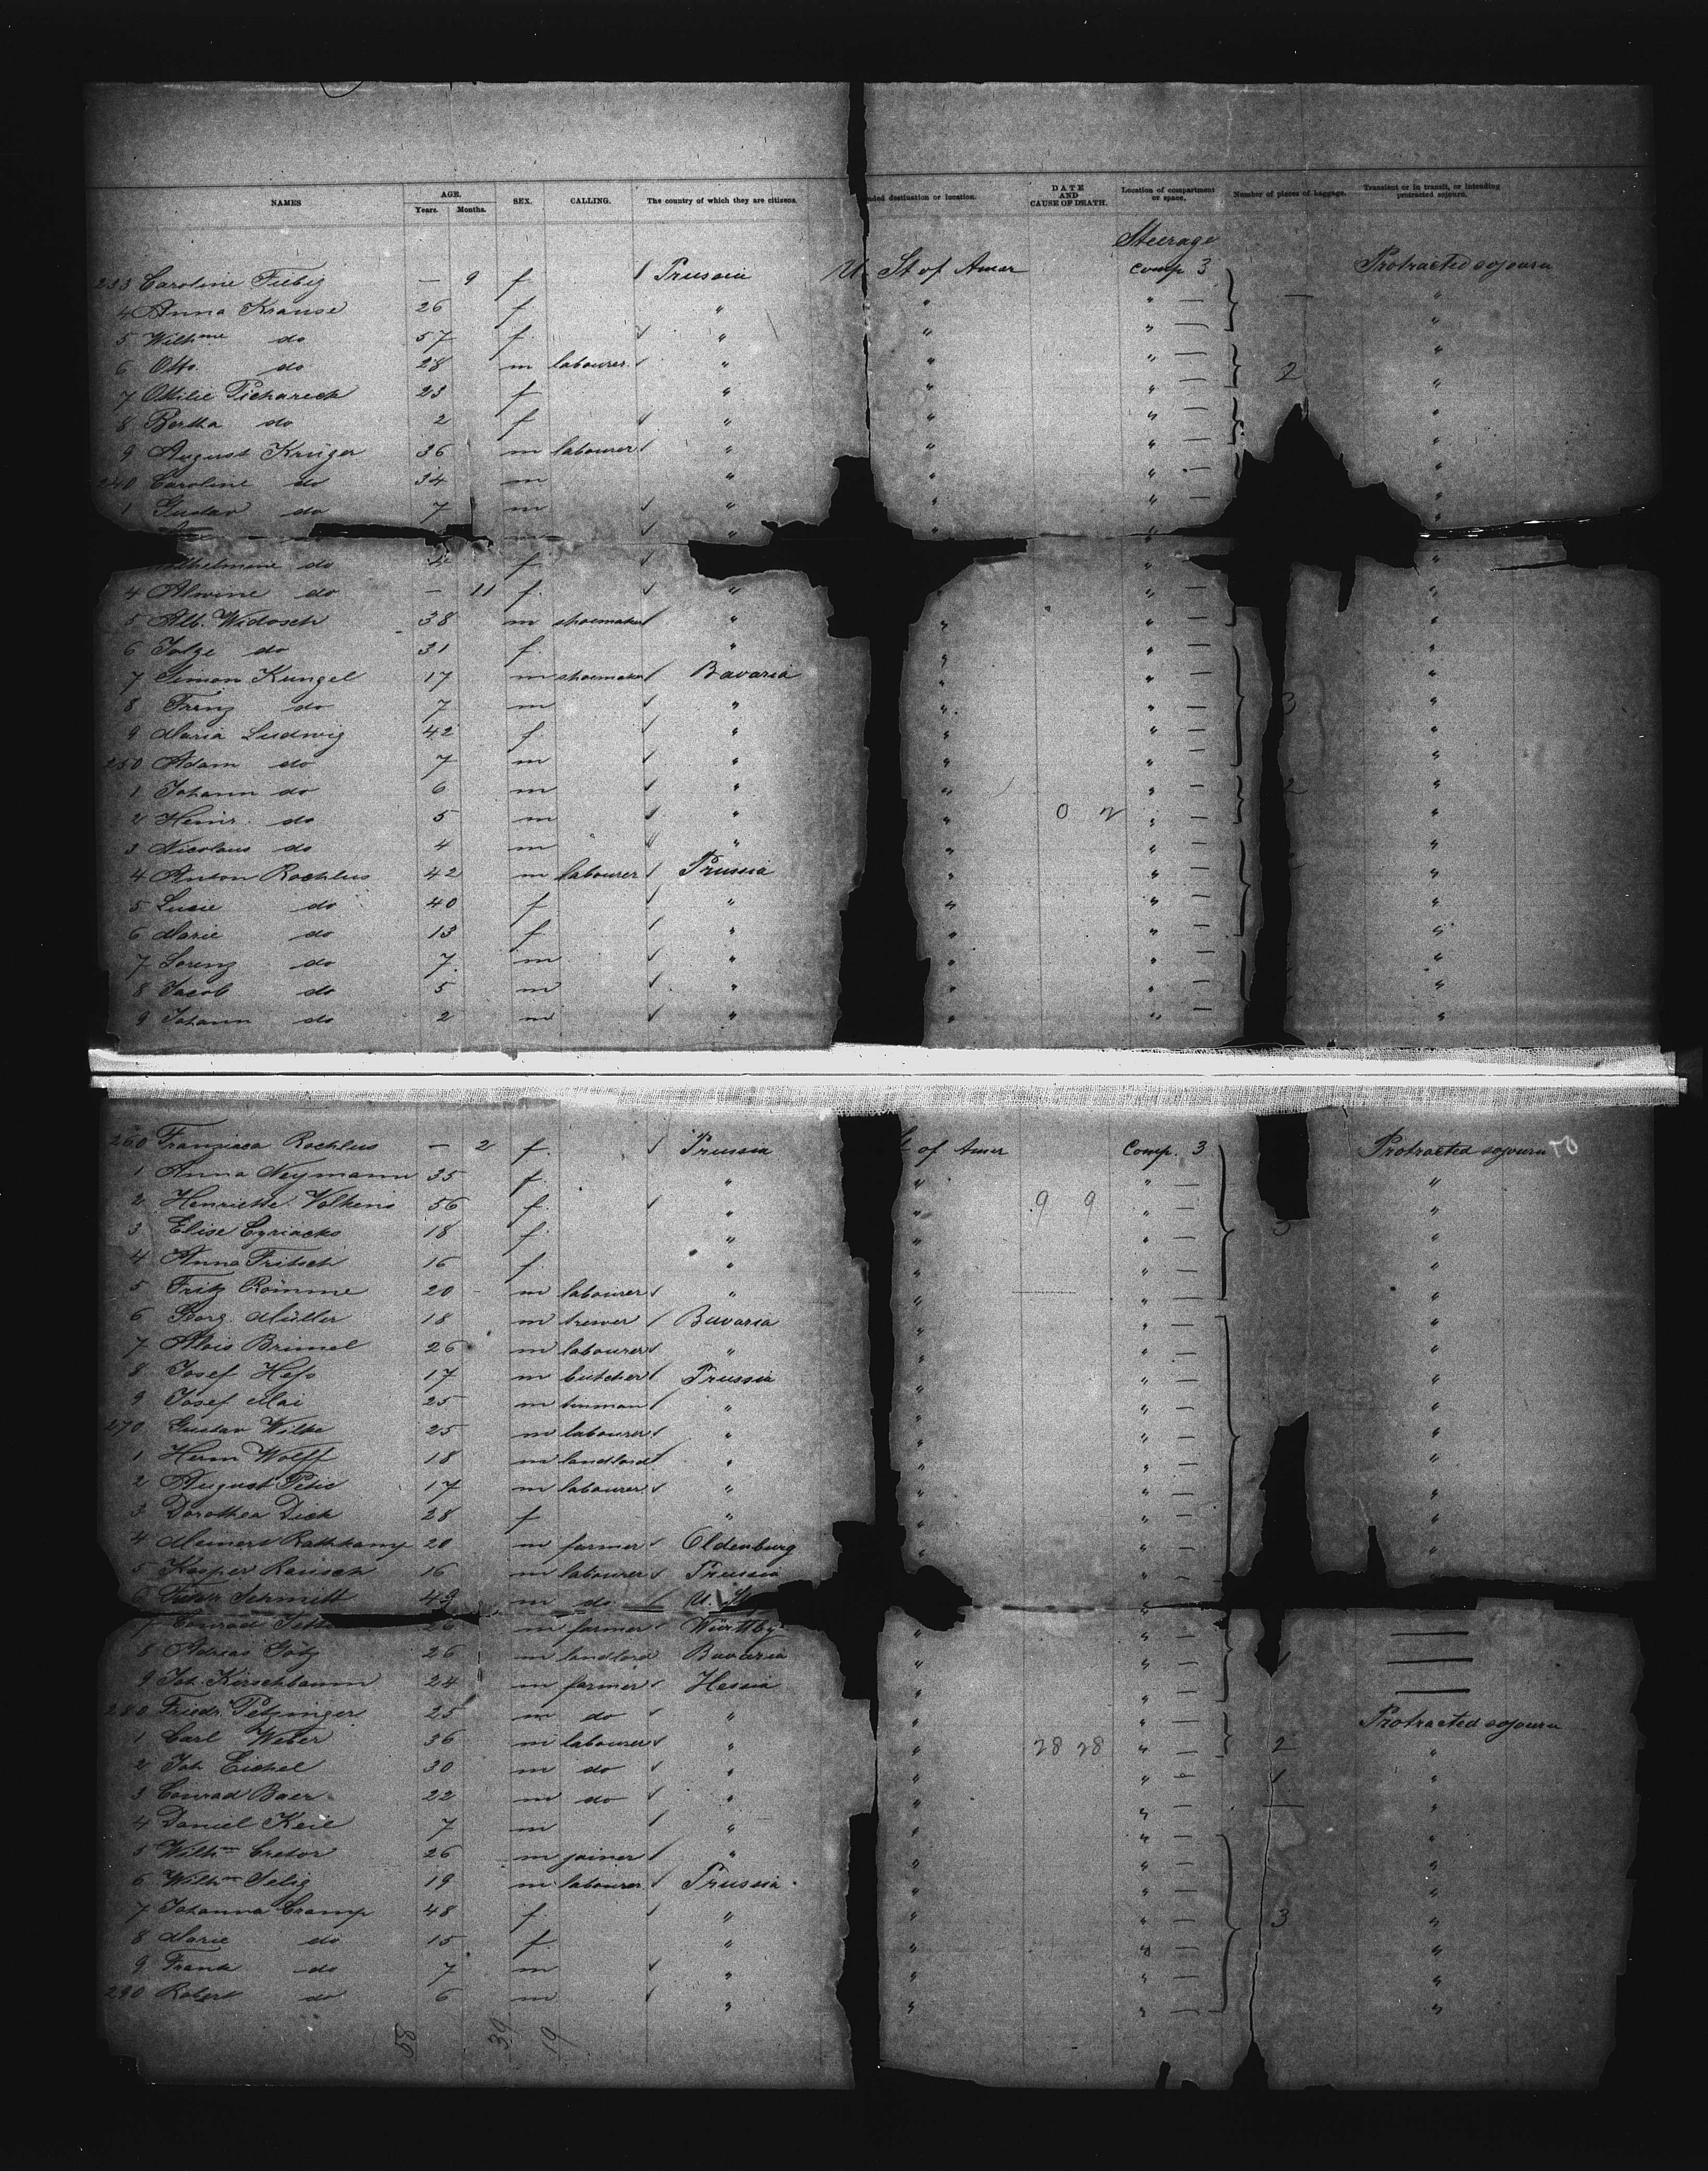 NAMES AGE. Years. Months. SEX. CALLING. The country of which they are citizens. nded destination or location. DATE AND CAUSE OF DEATH. Location of compartment or space. Number of pieces of baggage. Transient or in transit, or intending protracted sojourn.
Steerage
233 Caroline Fiebig — 9 f / Prussia U. St of Amer Comp 3 Protracted sojourn
4 Anna Krause 26 f " " " — — "
5 Wilhme do 57 f √ " " " — "
6 Otto do 28 m labourer √ " " " — "
7 Ottilie Pichareck 23 f " " " — 2 "
8 Bertha do 2 f √ " " " — "
9 August Krüger 36 m labourer √ " " " — "
240 Caroline do 34 m " " " — "
1 Gustav do 7 m √ " " " — "
√ " " " "
do f √ " — "
4 Alwine do — 11 f. √ " " " — "
5 Alb. Widosch 38 m shoemaker √ " " " — "
6 do 31 f. " " " — "
7 Simon Kungel 17 m shoemaker √ Bavaria " " — "
8 Franz do 7 m √ " " " — 3 "
9 Maria Ludwig 42 f √ " " " — "
250 Adam do 7 m √ " " " — "
1 Johann do 6 m √ " " " — 2 "
2 Heinr. do 5 m √ " " " — "
3 Nicolaus do 4 m √ " " " — "
4 Anton Rochlus 42 m labourer √ Prussia " " — "
5 Lucie do 40 f √ " " " — "
6 Marie do 13 f √ " " " — "
7 Lorenz do 7 m √ " " " — "
8 Jacob do 5 m √ " " " — "
9 Johann do 2 m √ " " " — "
260 Franzisca Rochlus — 2 f. √ Prussia of Amer Comp. 3 Protracted sojourn
1 Anna Neymann 35 f. " " " — "
2 Henriette Volkens 56 f. √ " " 9 9 " — "
3 Elise Cyriacks 18 f. " " " — "
4 Anna Fritsch 16 f " " " — "
5 Fritz Römme 20 m labourer √ " " " — "
6 Georg Müller 18 m brewer √ Bavaria " " — "
7 Alois Brimel 26 m labourer √ " " " — "
8 Josef Hess 17 m butcher √ Prussia " " — "
9 Josef Mai 25 m tinman √ " " " — "
270 Gustav Wilke 25 m labourer √ " " " — "
1 Herm Wolff 18 m landlord √ " " " — "
2 August 17 m labourer √ " " " — "
3 Dorothea Dick 28 f " " " — "
4 Meinert Rathkamp 20 m farmer √ Oldenburg " " — "
5 Kasper Rausch 16 m labourer √ Prussia " — "
6 Schmitt 43 m do √ U. St "
7 Conrad 26 m farmer √ Württbg " " — —
8 Andreas Götz 26 m landlord Bavaria " " — 1 —
9 Joh. Kirschbaum 24 m farmer √ Hessia " " — —
280 Friedr. Petzinger 25 m do √ " " " — Protracted sojourn
1 Carl Weber 36 m labourer √ " " 28 28 " — 2 "
2 Joh Eichel 30 m do √ " " " — 1 "
3 Conrad Baer 22 m do √ " " " — — "
4 Daniel Keil 7 m √ " " " — "
5 Wilhm Cretor 26 m joiner √ " " " — "
6 Wilhm Selig 19 m labourer √ Prussia " " — "
7 Johanna Cramp 48 f. √ " " " — 3 "
8 Marie do 15 f. " " " — "
9 Frank do 7 m √ " " " — "
290 Robert do 6 m √ " " " — "
58 39 19